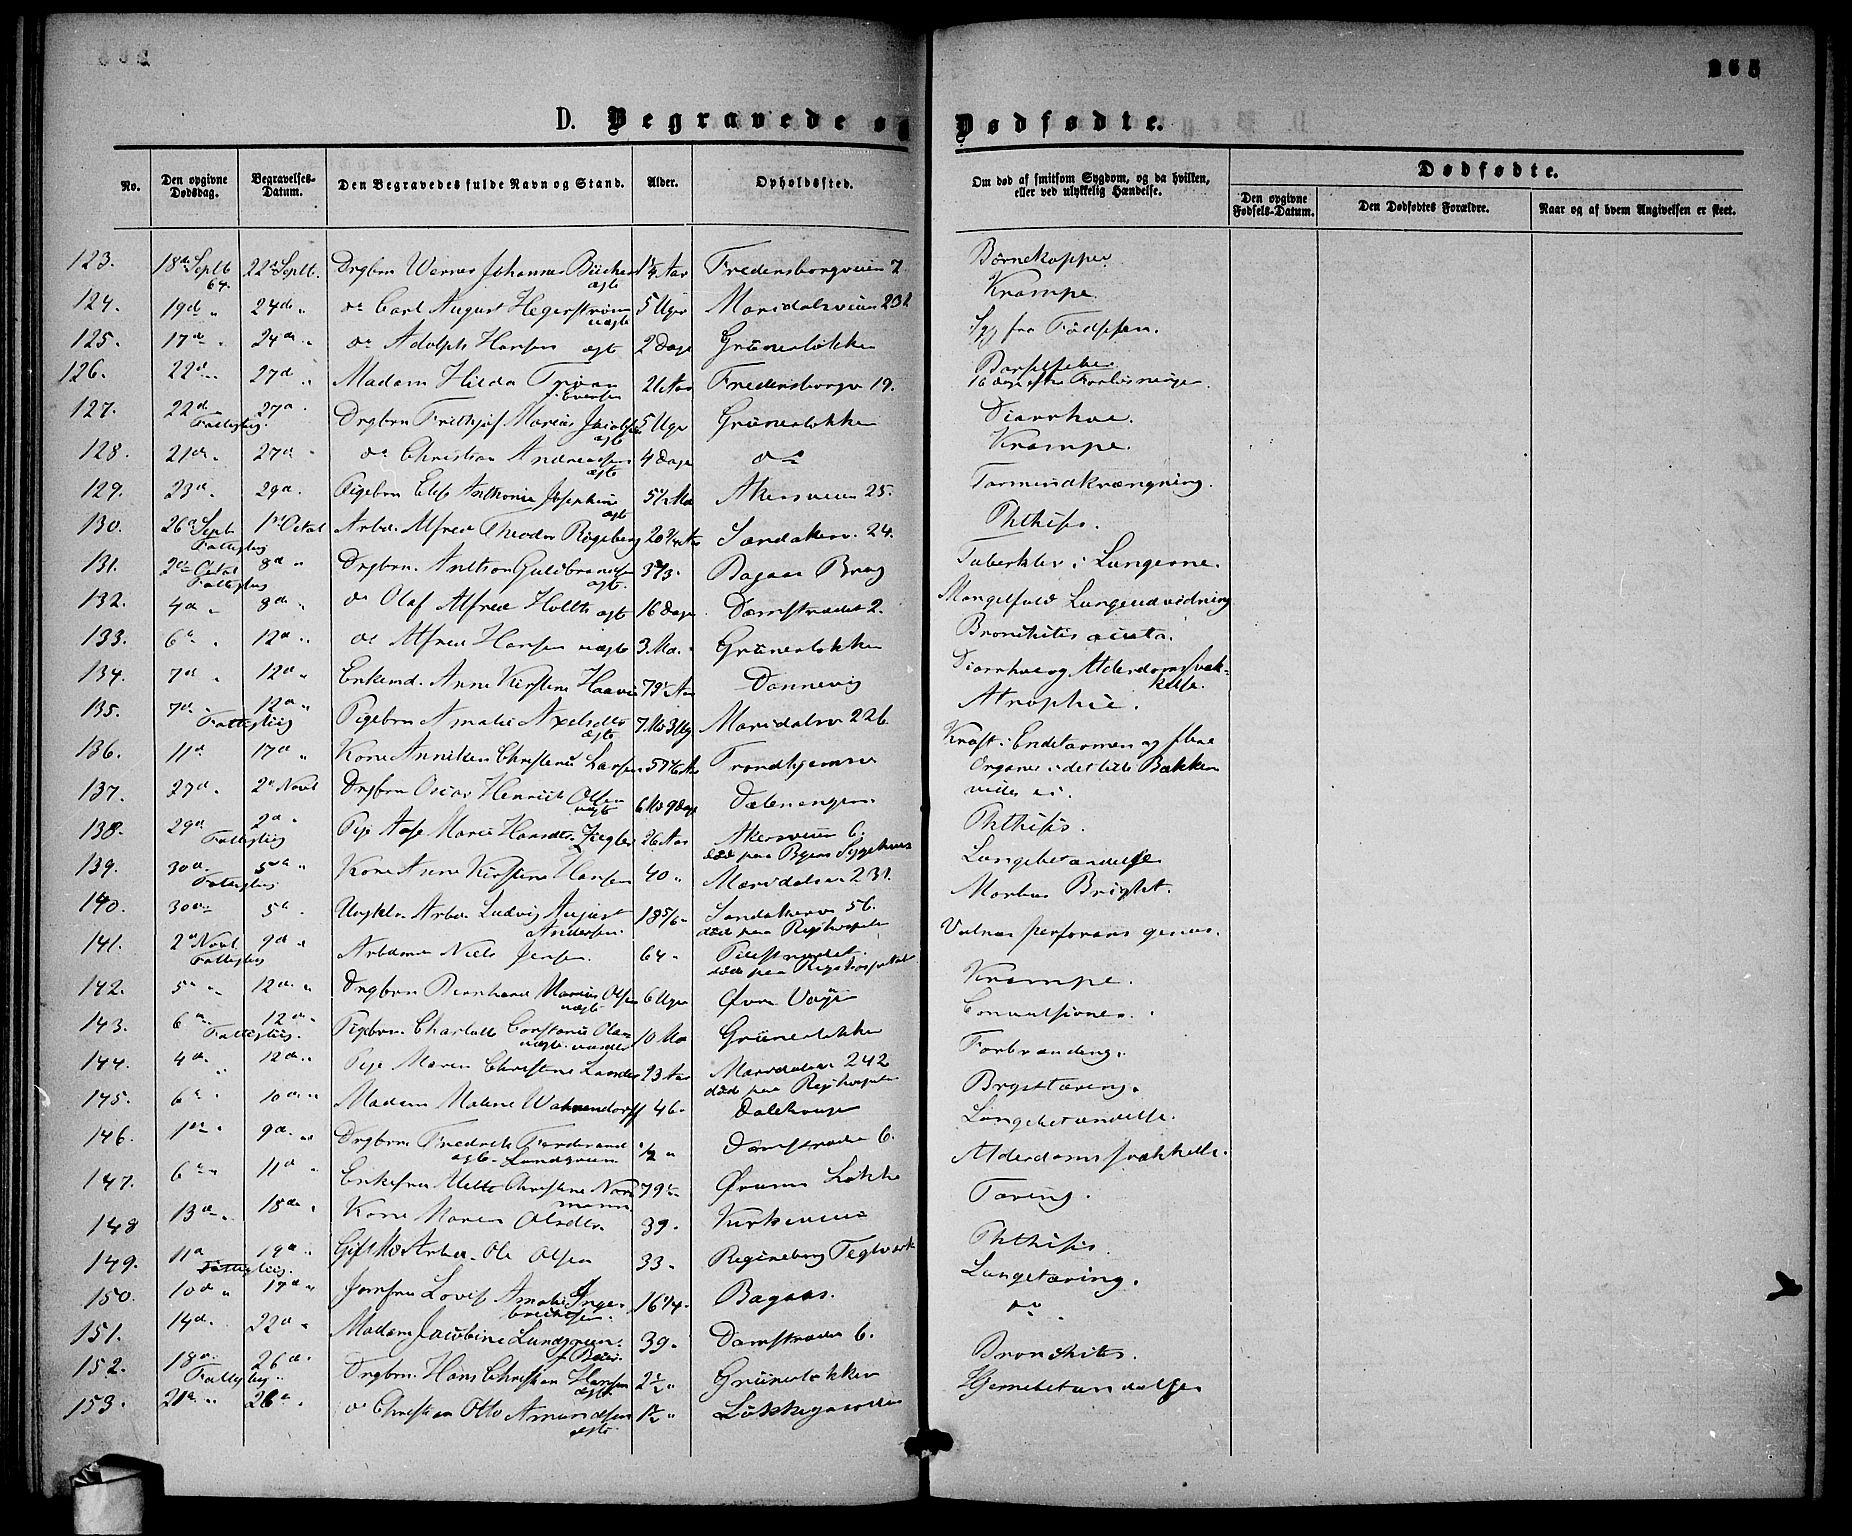 265
D. Begravede og Dødfødte.
No. Den opgivne Dødsdag. Begravelses-Datum. Den Begravedes fulde Navn og Stand. Alder. Opholdssted. Om død af smitsom Sygdom, og da hvilken, eller ved ulykkelig Hændelse. Dødfødte.
Den opgivne Fødsels-Datum. Den Dødfødtes Forældre. Naar og af hvem Angivelsen er skeet.
123. 18de Septb 64. 22de Septb. Drgbrn Werner Johannes Bücher ægte 1¼ Aar Fredensborgveien 7 Børnekopper.
124. 19d " 24de " do Carl August Hegerstrøm uægte 5 Uger Maridalsveien 231 Krampe.
125. 17de " 24de " do Adolph Hansen ægte 2 Dage Grünerløkken Syg fra Fødslen.
126. 22d " 27d " Madam Hilda f. Eversen 21 Aar Fredensborgv 19. Barselfeber 16 dage efter Forløsningen.
127. 22de Fattiglig. 27d Drgbrn Fridthjof Marius Jacobsen ægte 5 Uger Grünerløkken Diarrhoe.
128. 21de " 27de " do Christian Andreassen ægte 4 Dage do Krampe.
129. 23d. 29d. Pigebrn Elise Anthonie Josephine ægte 5½ Ma Akersveien 25. Tarmindkrængning.
130. 26de Septb Fattiglig 1ste Octob Arbm. Alfred Theodor Rogeberg 20¾ Aar Sandakerv. 24. Phthisis.
131. 2de Octob Fattiglig 8d " Drgbrn. Anthon Guldbrandsen ægte. Bagaas Brug Tuberkler i Lungerne.
132. 4d " 8de " do Olaf Alfred Holth ægte 16 Dage. Damstrædet 2. Mangelfuld Lungeudvidning
133. 6d " 12d " do Alfred Hansen uægte 3. Ma. Grünerløkken Bronchitis acuta.
134. 7d " 12d " Enkemd. Anne Kirstine Haavie 79½ Aar Dannevig Diarrhoe og Alderdomssvækkelse.
135. 7d. Fattiglig 12d " Pigebrn Amalie Axelsdtr ægte 7. Ma 3 Ug Maridalsv 226 Atrophie.
136. 11d 17d " Kone Anniken Christine Larsen Trondhjemsv Kræft i Endetarmen og flere Organer i det lille Bækken
137. 27d. 2d Novb Drgbrn Oscar Henrik Olsen uægte 6 Ma 9 Dage Dælenengen.
138. 29d Fattiglig 2d " Pige Aase Marie Hansdtr Ziegler 26 Aar Akersveien 6. død paa Byens Sygehuus Phthisis.
139. 30d. Fattiglig 5d " Kone Anne Kirstine Hansen 40 " Maridalsv 231. Lungebetændelse
140. 30de 5d. Ungkl. Arbm. Ludvig August Andersen. 18 5/6 " Sandakerv 56. død paa Rigshospitalet Morbus Brightii.
141. 2d Novb Fattiglig 9d " Arbdsmd Niels Jensen. 64 " Pilestrædet. død paa Rigshospitalet Vulnus perforans genus.
142. 5d " 12d. " Drgbrn Bernhard Marius Olsen uægte 6 Uger Øvre Voyen Krampe.
143. 6d Fattiglig. 12d " Pigebrn. Charlotte Constance Olausdatter uægte 10 Ma Grünerløkken Convulsioner.
144. 4d. 12d. Pige Maren Christine Larsdtr 23 Aar Maridalsv 242 død paa Rigshospitalet Forbrænding.
145. 6d " 10d " Madam Malene Wahrendorff 46. Dælehaugen Brystæring.
146. 1ste " 9d. " Drgbrn. Fredrik Ferdinand Lundgreen ægte. ½ " Damstrædet 6. Lungebetændelse.
147. 6d " 11d " Enkefru Mette Christine Normann 79½ Ørnens Løkke Alderdomssvækkelse.
148 13d " 18de " Kone Maren Olsdtr. 39. Kirkeveien Tæring.
149. 11d Fattiglig. 19d " Gift Md Arbm. Ole Olsen 33. Regineborg Teglværk Phthisis.
150. 10d " 17d " Jomfru Lovise Amalie Ingebrichtsen. 16¼. Bagaas. Lungetæring.
151. 14d. 22d " Madam Jacobine Lundgreen. 39. Damstrædet 6. do
152. 18d. Fattiglig. 26d. Drgbrn. Hans Christian Hansen ægte 2½ " Grünerløkken Bronchitis.
153. 21d " 26d. do Christian Otto Amundsen ægte 1½ " Løkkegaarden Hjernebetændelse